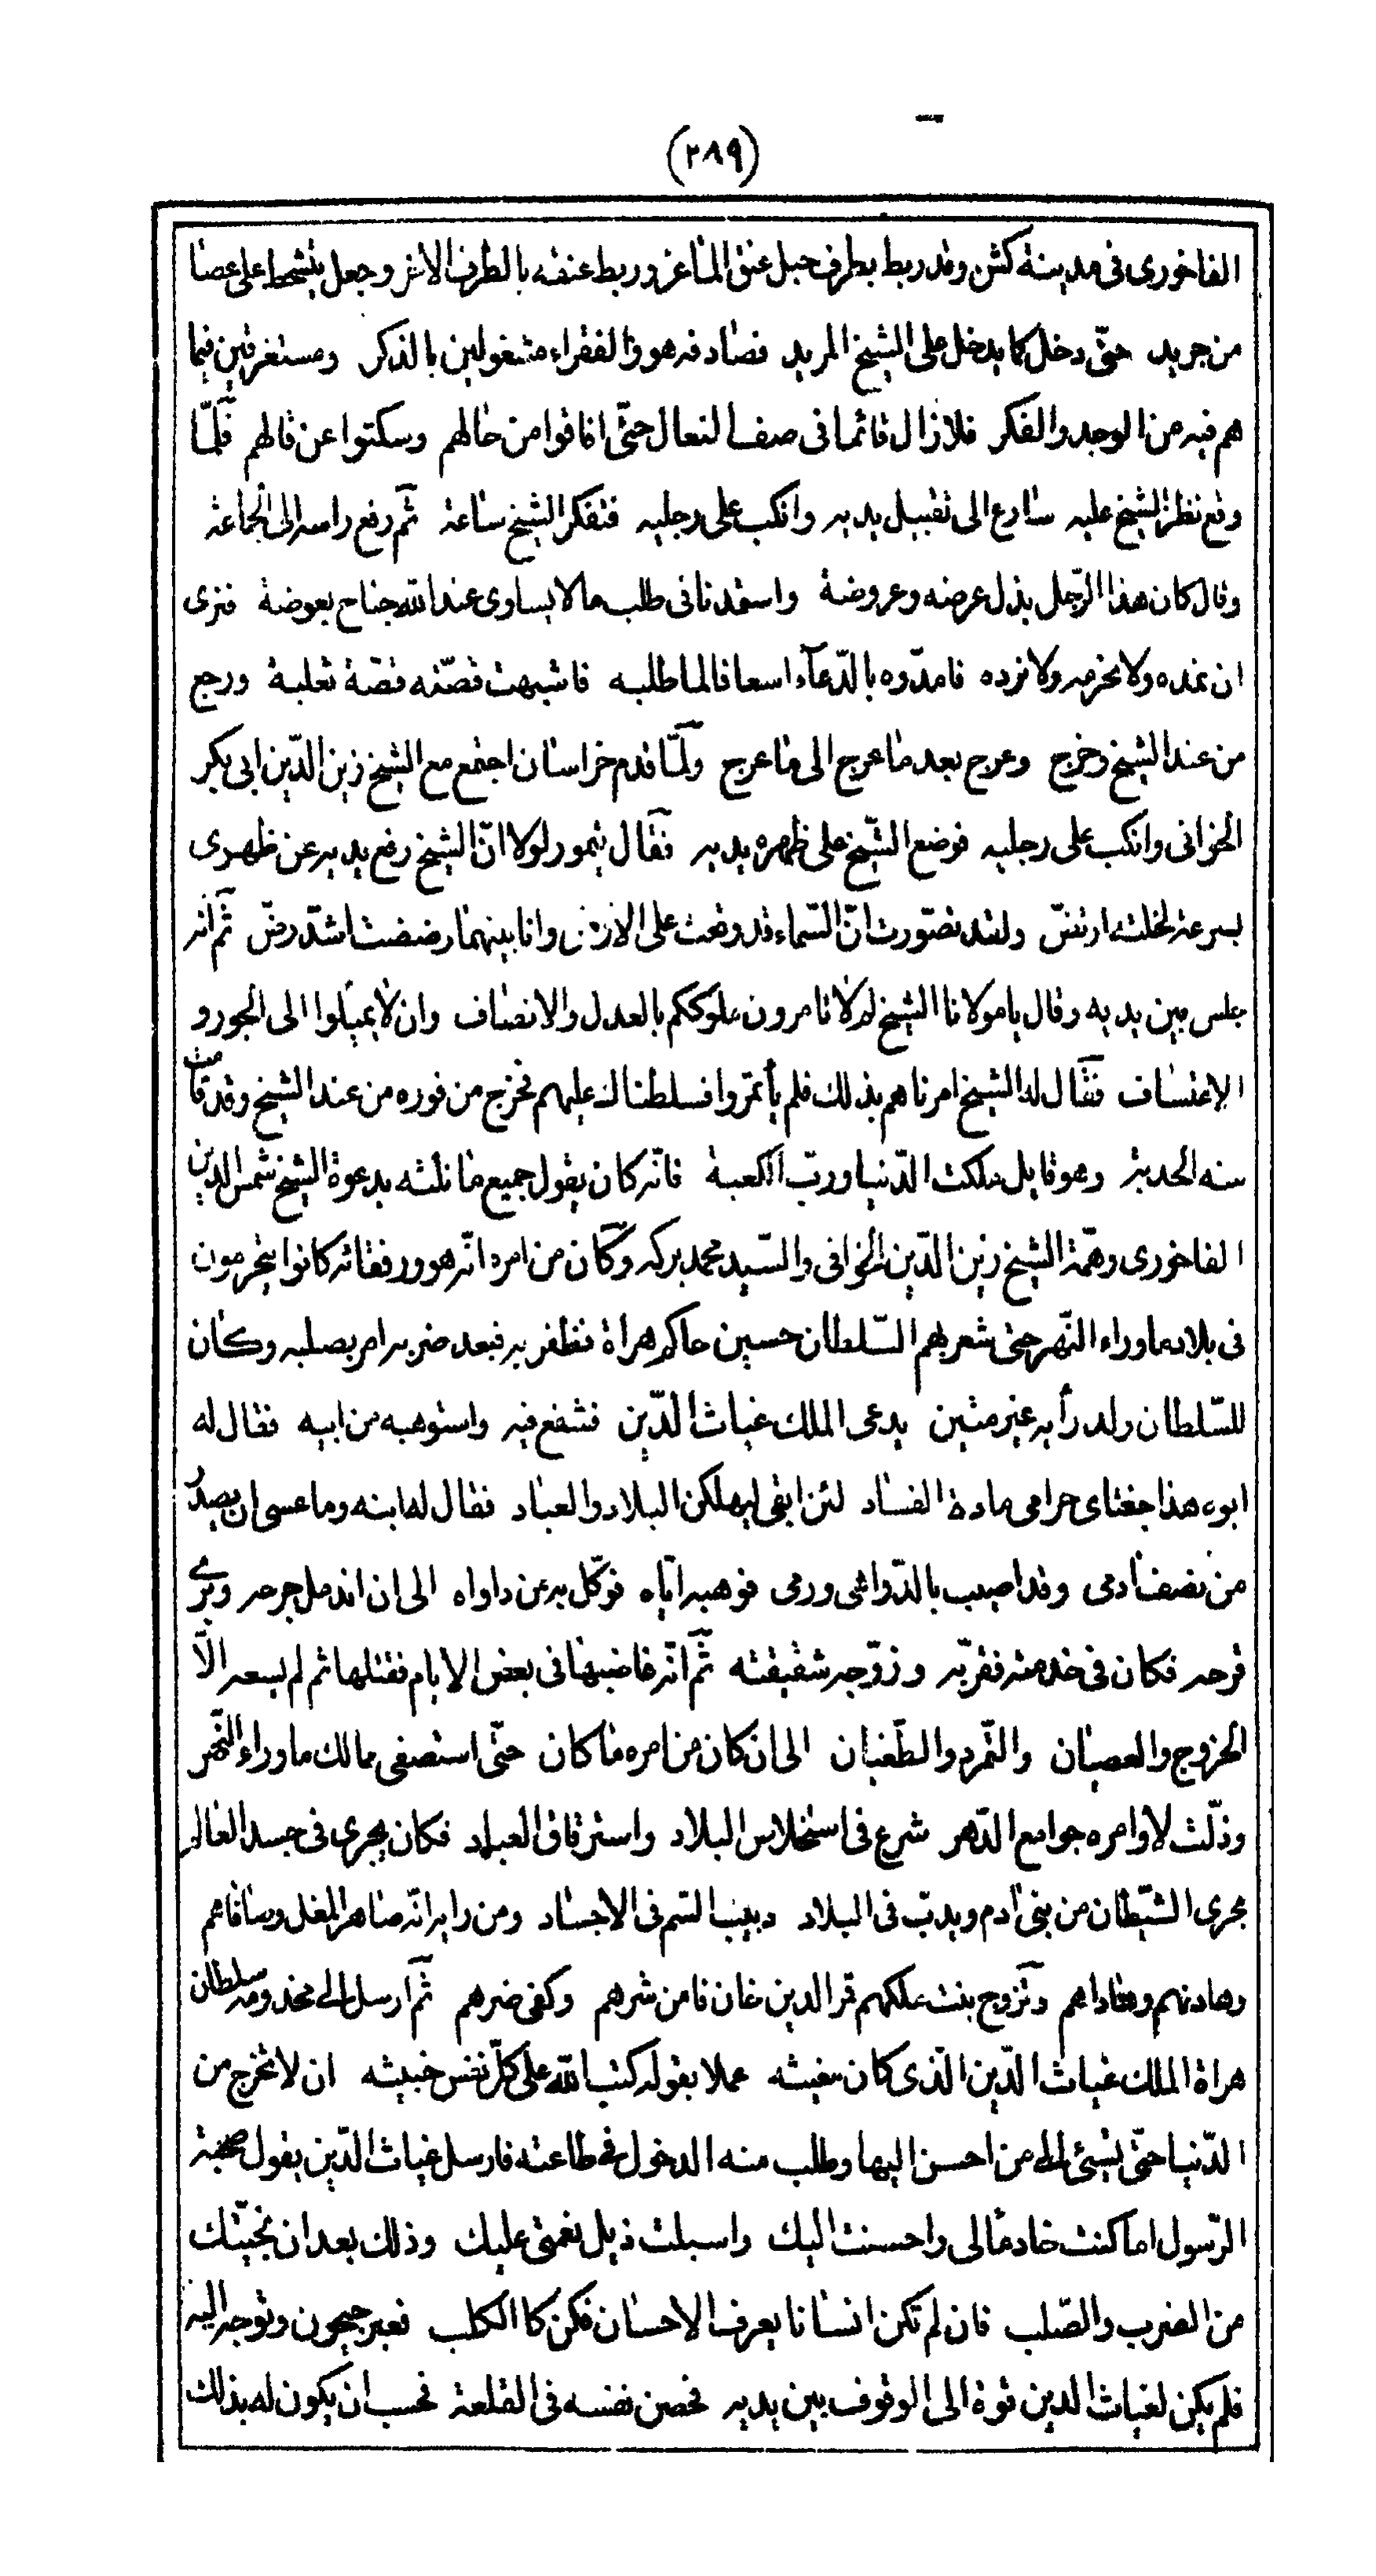 (٢٨٩)
الفاخورى فى مدينة كش وقد ربط بطرف حبل عنق الماعز وربط عنقه بالطرف الاخر وجعل يتشحط على عصا
من جريد حتّى دخل كما يدخل على الشيخ المريد فصادفه هو والفقراء مشغولين بالذكر ومستغرقين فيما
هم فيه من الوجد والفكر فلا زال قائما فى صف النعال حتّى افاقوا من حالهم وسكتوا عن قالهم فلمّا
وقع نظر الشيخ عليه سارع الى تقبيل يديه وانكب على رجليه فتفكر الشيخ ساعة ثم رفع راسه الى الجماعة
وقال كان هذا الرّجل بذل عرضه وعروضة واستمدنا فى طلب ما لا يساوى عند الله جناح بعوضة فنرى
ان نمده ولا نحرمه ولا نرده فامدّوه بالدّعآء اسعافا لما طلبه فاشبهت قصّته قصّة ثعلبة ورجع
من عند الشيخ وخرج وعرج بعد ما عرج الى ما عرج ولمّا قدم خراسان اجتمع مع الشيخ زين الدّين ابى بكر
الخوافى وانكب على رجليه فوضع الشّيخ على ظهره يديه فقال تيمور لولا انّ الشيخ رفع يديه عن ظهرى
بسرعة لخلته ارتضّ ولقد تصّورت انّ السّماء قد وقعت على الارض وانا بينهما رضضت اشدّ رضّ ثم انه
جلس بين يديه وقال يا مولانا الشيخ لم لا تامرون ملوككم بالعدل والانصاف وان لا يميلوا الى الجور و
الاعتساف فقال له الشيخ امرناهم بذلك فلم يأتمروا فسلطناك عليهم فخرج من فوره من عند الشيخ وقد قامت
منه الحدبة وهو قايل ملكت الدّنيا وربّ الكعبة فانّه كان يقول جميع ما نلته بدعوة الشيخ شمس الدين
الفاخورى وهمّة الشيخ زين الدّين الخوافى والسّيد محمد بركه وكان من امره انّه هو ورفقائه كانوا يتجرمون
فى بلاد ماوراء النّهر حتى شعر بهم السّلطان حسين حاكم هراة فظفر به فبعد ضربه امر بصلبه وكان
للسّلطان ولد رأيه غير متين يدعى الملك غياث الدّين فشفع فيه واستوهبه من ابيه فقال له
ابوه هذا جغتاى حرامى مادة الفساد لئن ابقى ليهلكن البلاد والعباد فقال له ابنه وما عسى ان يصدر
من نصف آدمى وقد اصيب بالدّواهى ورمى فوهبه ايّاه فوكّل به من داواه الى ان اندمل جرحه وبرئ
قرحه فكان فى خدمته فقربّه وزوّجه شقيقته ثمّ انّه غاضبها فى بعض الايام فقتلها ثم لم يسعه الّا
الخروج والعصيان والتّمرد والطّغيان الى ان كان من امره ما كان حتّى استصفى ممالك ماوراء النّهر
وذلّت لاوامره جوامع الدّهر شرع فى استخلاص البلاد واسترقاق العباد فكان يجرى فى جسد العالم
مجرى الشّيطان من بنى آدم ويدبّ فى البلاد دبيب السّم فى الاجساد ومن رايه انّه صاهر المغل وصافاهم
وهادنهم وهاداهم وتزوج بنت ملكهم قمر الدين خان فامن شرهم وكفى ضرهم ثمّ ارسل الى مخدومه سلطان
هراة الملك غياث الدّين الّذى كان مغيثه عملا بقوله كتب الله على كلّ نفس خبيثه ان لا تخرج من
الدّنيا حتّى تسئ الى من احسن اليها وطلب منه الدخول فى طاعته فارسل غياث الدّين يقول صحبة
الرّسول اما كنت خادما لى واحسنت اليك واسبلت ذيل نعمتى عليك وذلك بعد ان نجيتك
من الضرب والصّلب فان لم تكن انسانا يعرف الاحسان فكن كا الكلب فعبر جيحون وتوجه اليه
فلم يكن لغياث الدين قوة الى الوقوف بين يديه فحصن نفسه فى القلعة فحسب ان يكون له بذلك